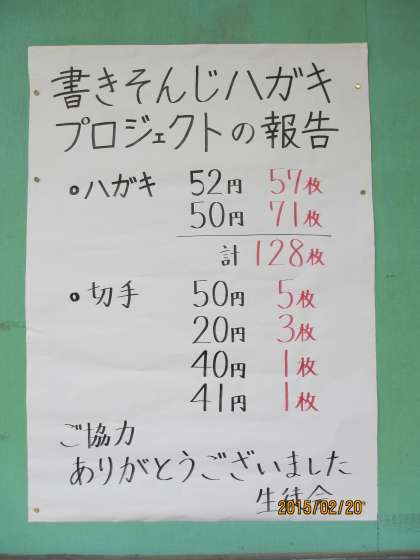 書きそんじハガキ
プロジェクトの報告
ハガキ 52円 57枚
50円 71枚
計 128枚
切手 50円 5枚
20円 3枚
40円 1枚
41円 1枚
ご協力
ありがとうございました
生徒会
2015/02/20